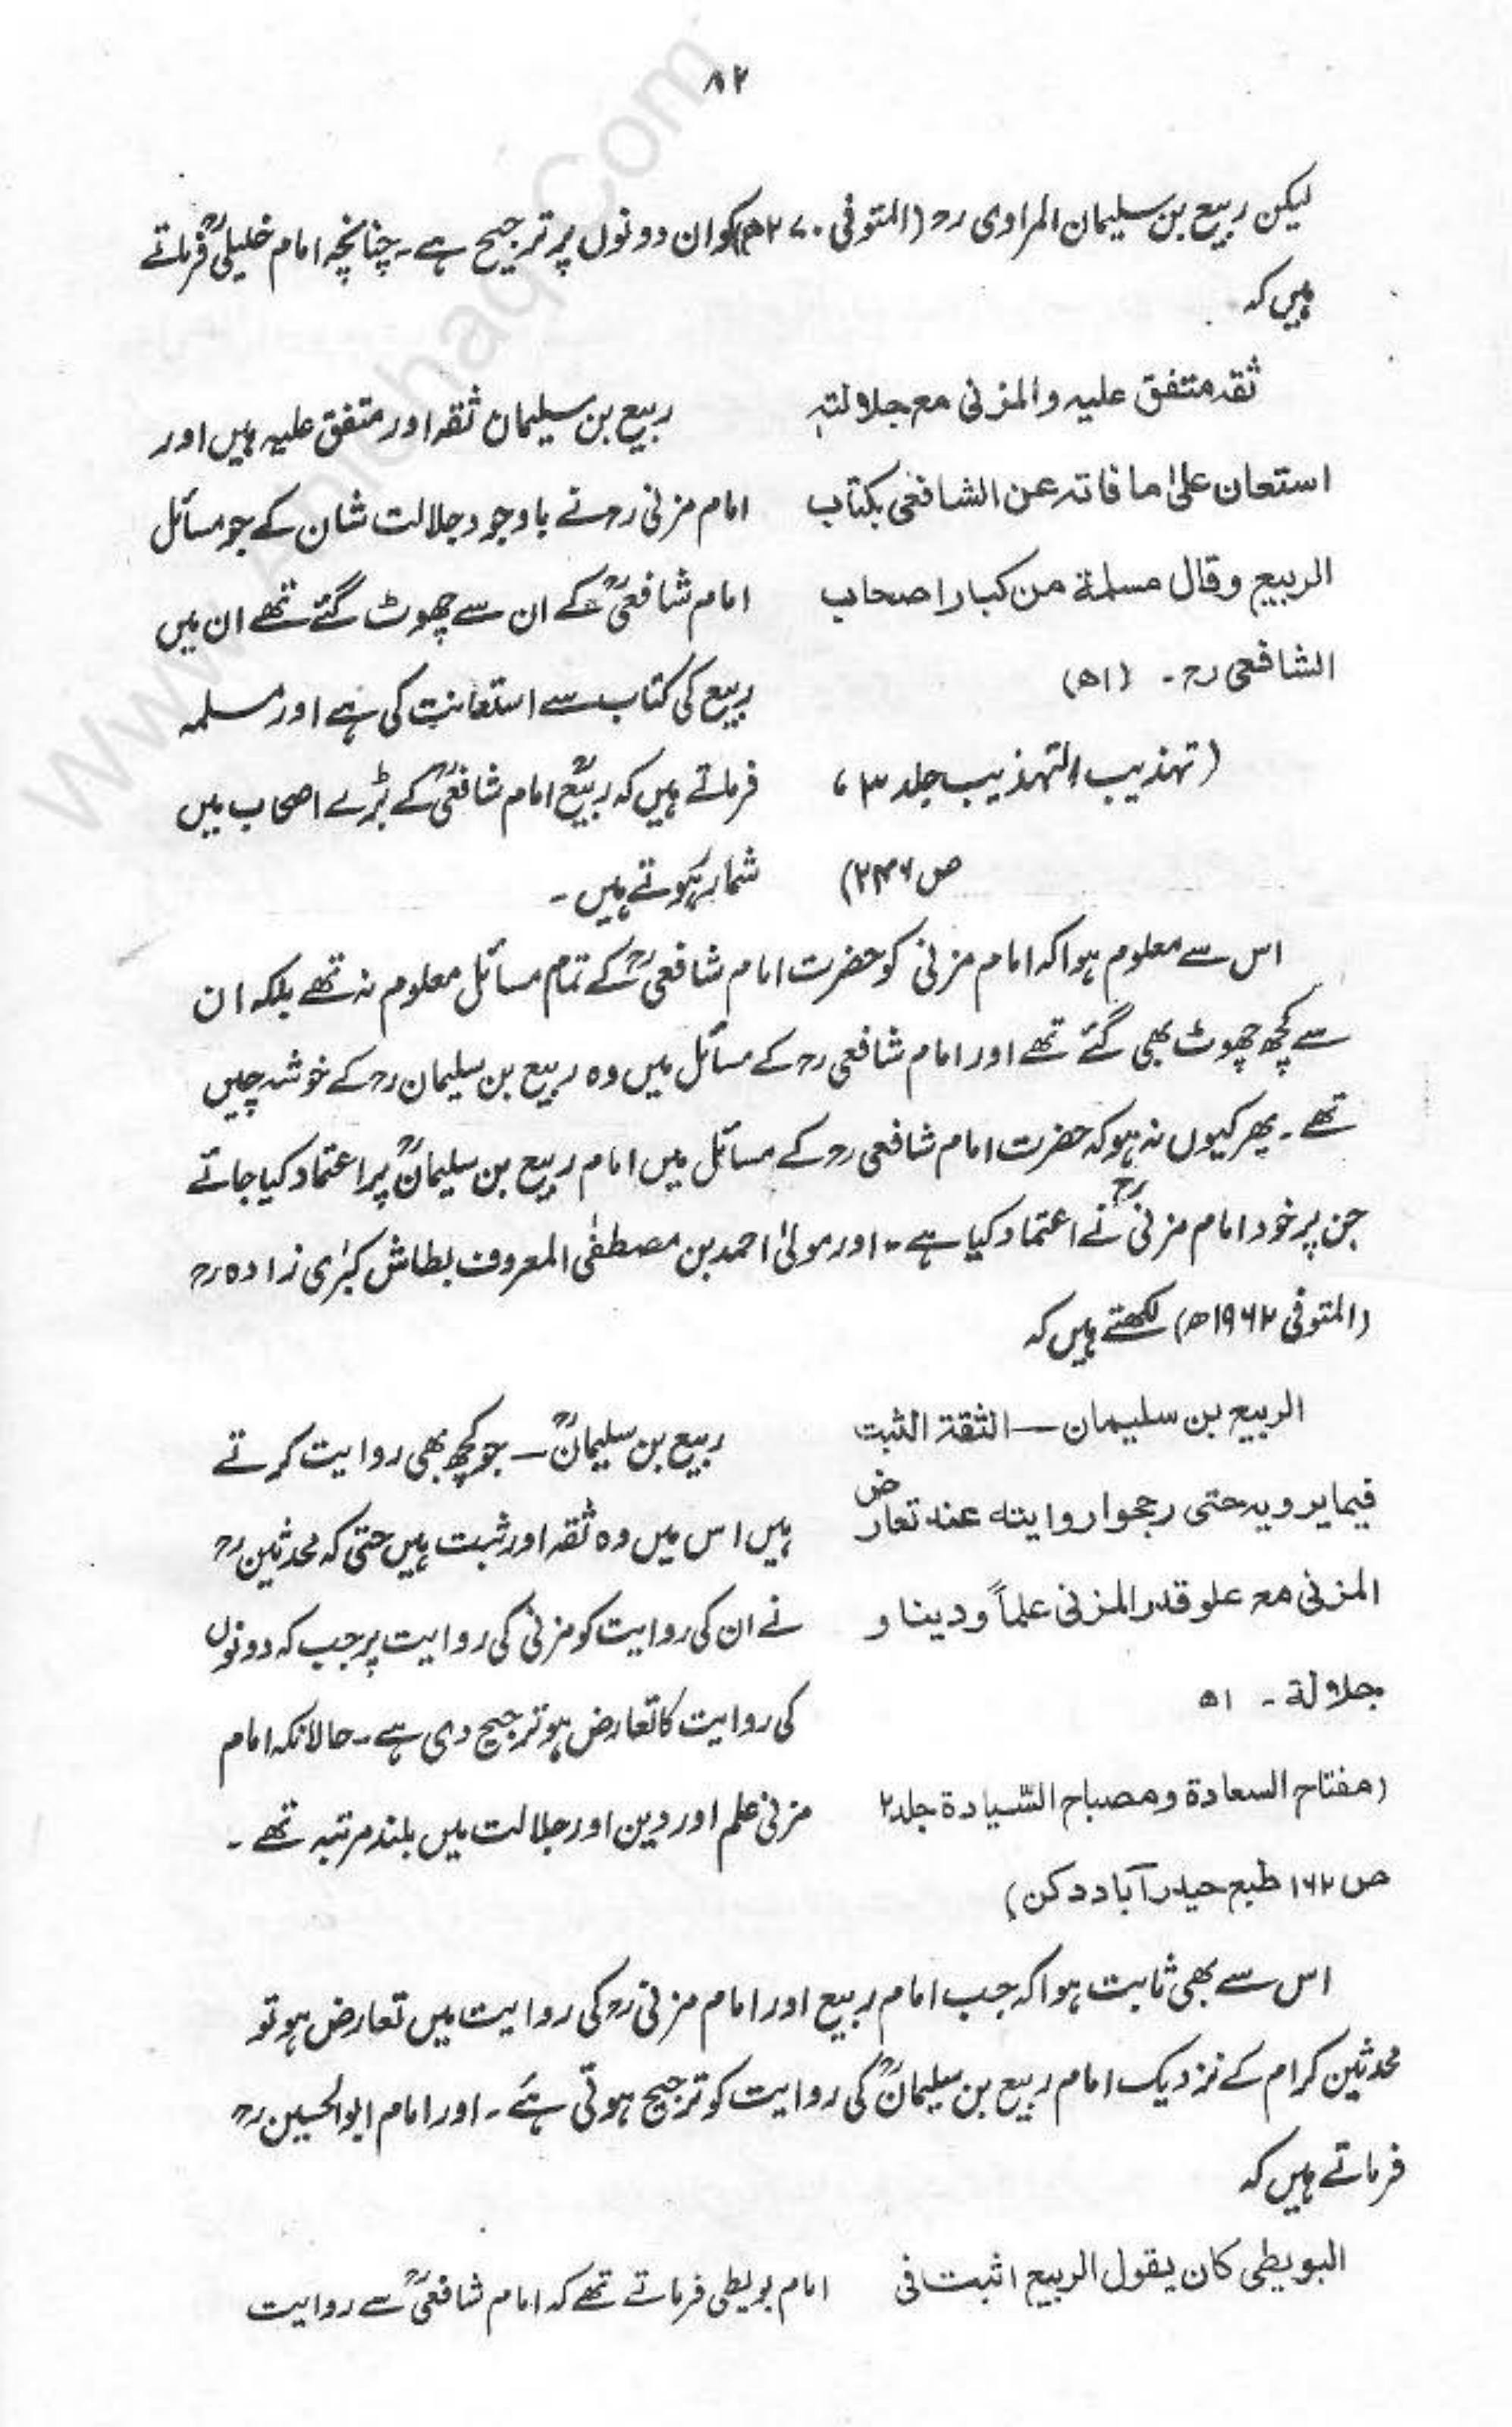 ۸۲
لیکن ربیع بن سلیمان المرادی رح (المتوفی ۲۷۰ھ) کو ان دونوں پر ترجیح ہے۔ چنانچہ امام خلیلیؒ فرماتے
ہیں کہ
ثقہ متفق علیہ والمزنی مع جلالتہٖ
استعان علیٰ ما فاتہ عن الشافعی بکتاب
الربیع وقال مسلمة من کبار اصحاب
الشافعی رح۔ (اھ)
(تہذیب التہذیب جلد ۳،
ص ۲۴۶)
ربیع بن سلیمان ثقہ اور متفق علیہ ہیں اور
امام مزنی رح نے باوجود جلالت شان کے جو مسائل
امام شافعیؒ کے ان سے چھوٹ گئے تھے ان میں
ربیع کی کتاب سے استعانت کی ہے اور مسلمہ
فرماتے ہیں کہ ربیعؒ امام شافعیؒ کے بڑے اصحاب میں
شمار ہوتے ہیں۔
اس سے معلوم ہوا کہ امام مزنی کو حضرت امام شافعیؒ کے تمام مسائل معلوم نہ تھے بلکہ ان
سے کچھ چھوٹ بھی گئے تھے اور امام شافعی رح کے مسائل میں وہ ربیع بن سلیمان رح کے خوشہ چیں
تھے۔ پھر کیوں نہ ہو کہ حضرت امام شافعی رح کے مسائل میں امام ربیع بن سلیمانؒ پر اعتماد کیا جائے
جن پر خود امام مزنیؒ نے اعتماد کیا ہے۔ اور مولیٰ احمد بن مصطفٰی المعروف بطاش کبرٰی زادہ رح
(المتوفی ۱۹۶۲ھ) لکھتے ہیں کہ
الربیع بن سلیمان — الثقة الثبت
فیما یرویہ حتی رجحوا روایتہ عند تعارض
المزنی مع علو قدر المزنی علماً و دینا و
جلالة۔ اھ
(مفتاح السعادة ومصباح السّیادة جلد ۲
ص ۱۶۲ طبع حیدر آباد دکن)
ربیع بن سلیمانؒ — جو کچھ بھی روایت کرتے
ہیں اس میں وہ ثقہ اور ثبت ہیں حتی کہ محدثین رح
نے ان کی روایت کو مزنی کی روایت پر جب کہ دونوں
کی روایت کا تعارض ہو ترجیح دی ہے۔ حالانکہ امام
مزنی علم اور دین اور جلالت میں بلند مرتبہ تھے۔
اس سے بھی ثابت ہوا کہ جب امام ربیع اور امام مزنی رح کی روایت میں تعارض ہو تو
محدثین کرام کے نزدیک امام ربیع بن سلیمانؒ کی روایت کو ترجیح ہوتی ہے۔ اور امام ابو الحسین رح
فرماتے ہیں کہ
البویطی کان یقول الربیع اثبت فی
امام بویطی فرماتے تھے کہ امام شافعیؒ سے روایت